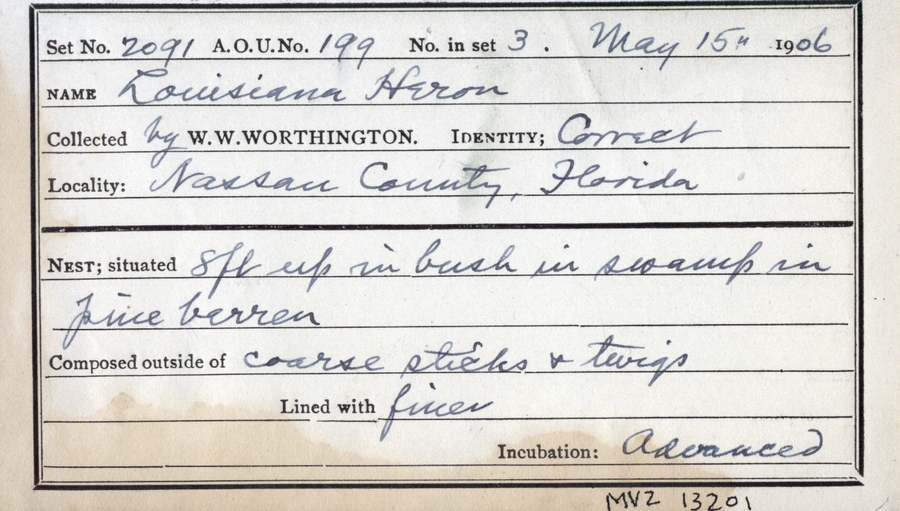 Set No. 2091 A.O.U.No. 199 No. in set 3. May 15" 1906
NAME Louisiana Heron
Collected by W.W.WORTHINGTON. IDENTITY; Correct
Locality: Nassau County, Florida
NEST; situated 8ft up in bush in swamp in
pine barren
Composed outside of coarse sticks & twigs
Lined with finer
Incubation: Advanced
MVZ 13201